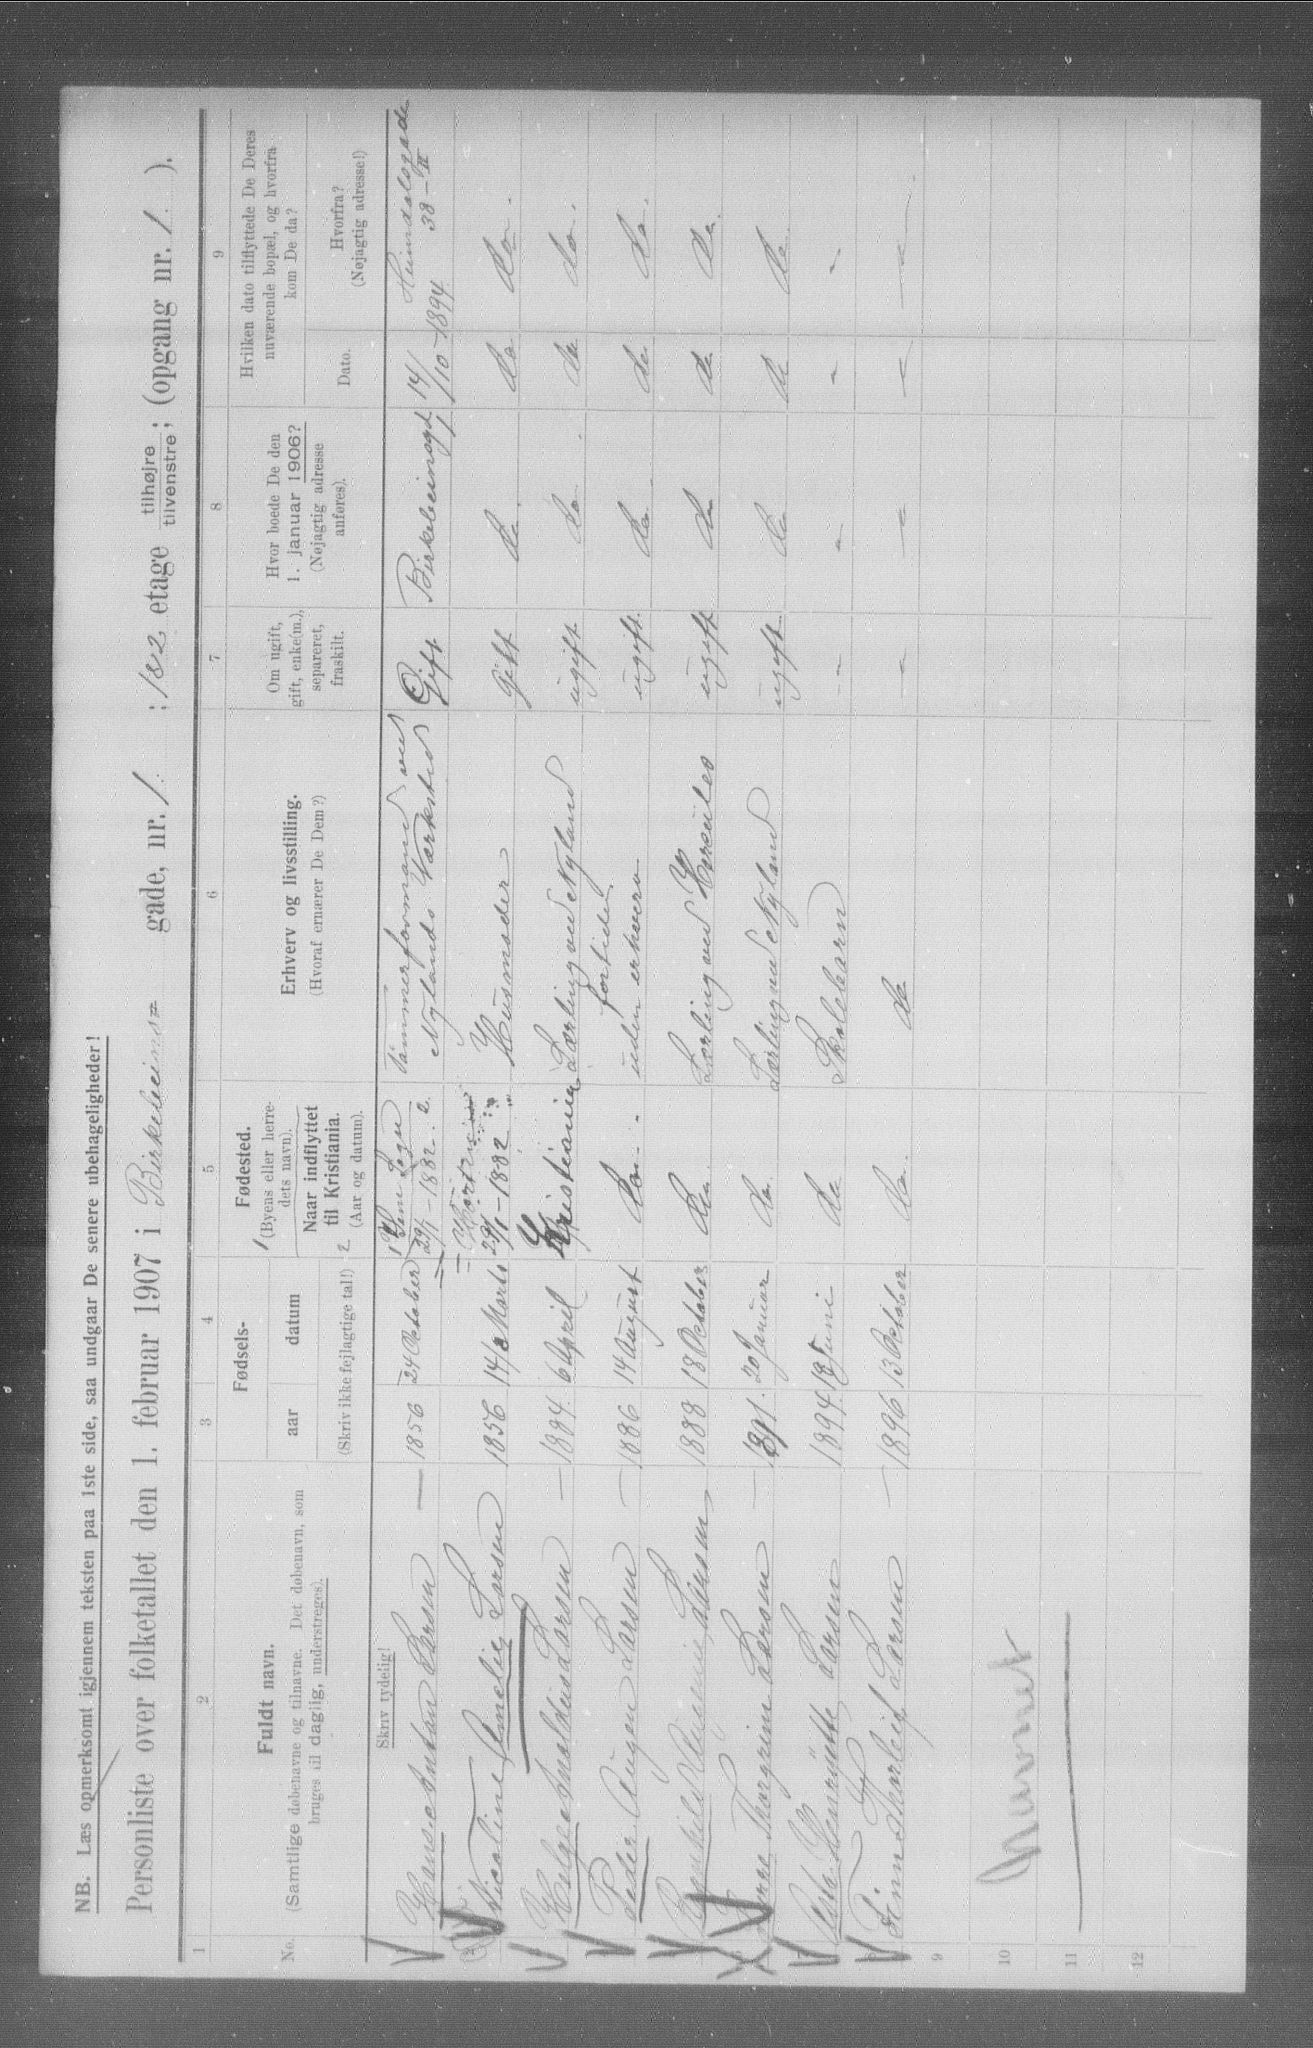 NB. Læs opmerksomt igjennem teksten paa 1ste side, saa undgaar De senere ubehageligheder!
Personliste over folketallet den 1. februar 1907 i Birkebeiner= gade, nr. 1. ; 1&2 etage tilhøjre tilvenstre; (opgang nr. 1. ).
1 2 3 4 5 6 7 8 9
No.
Fuldt navn.
(Samtlige døbenavne og tilnavne. Det døbenavn, som
bruges til daglig, understreges).
Fødsels-
aar datum
(Skriv ikke fejlagtige tal!)
1 Fødested.
(Byens eller herre-
dets navn).
Naar indflyttet
til Kristiania.
2 (Aar og datum).
Erhverv og livsstilling.
(Hvoraf ernærer De Dem?)
Om ugift,
gift, enke(m.),
separeret,
fraskilt.
Hvor boede De den
1. januar 1906?
(Nøjagtig adresse
anføres).
Hvilken dato tilflyttede De Deres
nuværende bopæl, og hvorfra
kom De da?
Dato.
Hvorfra?
(Nøjagtig adresse!)
Skriv tydelig!
Hans Anton Larsen — 1856 24 Oktober 1 Sem Sogn 29/1 – 1882. 2. Tømmerformand ved Nylands Værksted Gift 14/10 – 1894 Heimdalsgade 38 – II
Nicoline Amelie Larsen 1856 14 Marts 29/1 – 1882 Husmoder Gift do do. do.
Helge Arnoldus Larsen — 1884 6 April Kristiania Lærling ved Nyland ugift do. do do.
Peder August Larsen — 1886 14 August do. fortiden uden erhverv ugift. do. do do.
Larsen 1888 18 Oktober do. Lærling ved ugift do do do.
Thorgrim Larsen — 1891. 20 Januar do. Lærling ved Nyland ugift do do do.
Larsen 1894 18 Juni do Skolebarn - - - -
Finn Thorleif Larsen — 1896 13 Oktober do. do - - - -
9
10
11
12